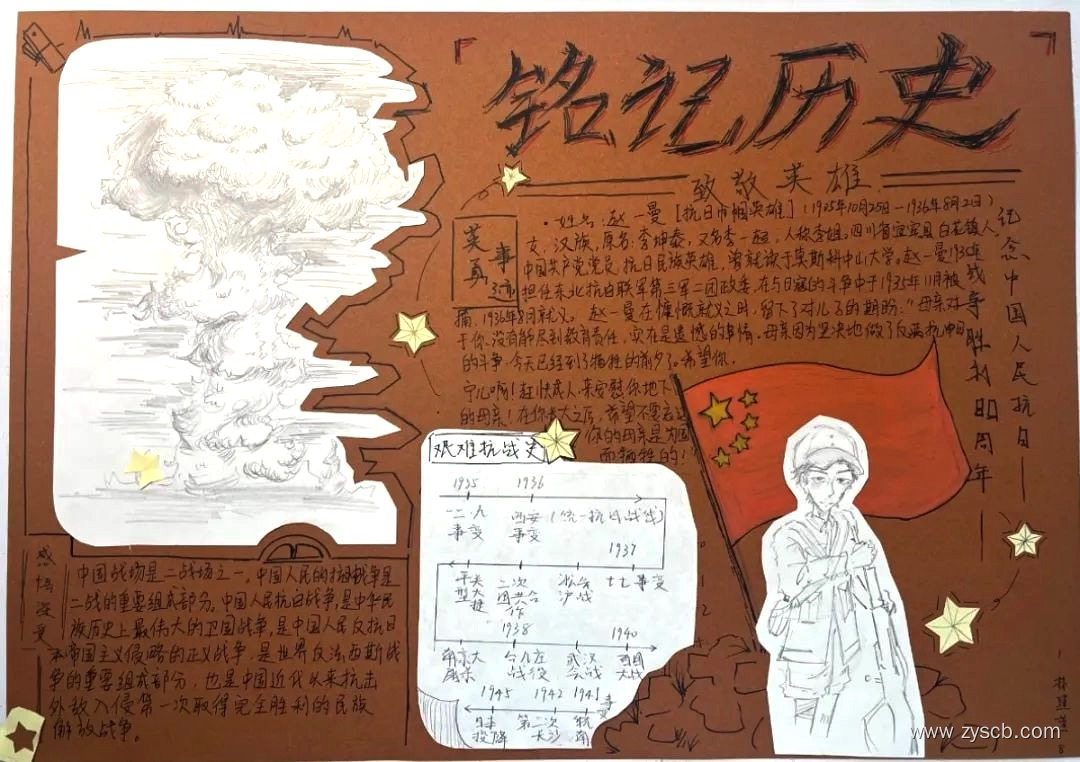 铭记历史
致敬英雄
纪念中国人民抗日战争胜利80周年
英雄事迹
·姓名:赵一曼[抗日巾帼英雄](1925年10月25日—1936年8月2日)
女,汉族,原名:李坤泰,又名李一超,人称李姐。四川省宜宾县白花镇人,
中国共产党党员,抗日民族英雄,曾就读于莫斯科中山大学。赵一曼1935年
担任东北抗日联军第三军二团政委,在与日寇的斗争中于1935年11月被
捕,1936年8月就义。赵一曼在慷慨就义之时,留下了对儿子的期盼:“母亲对
于你没有能尽到教育责任,实在是遗憾的事情。母亲因为坚决地做了反满抗日
的斗争,今天已经到了牺牲的前夕了。希望你,
宁儿啊!赶快成人,来安慰你地下
的母亲!在你长大之后,希望不要忘记
你的母亲是为国
而牺牲的!”
艰难抗战史
1935 1936
一二·九事变 西安事变 (统一抗日战线)
1937
平型关大捷 二次国共合作 淞沪会战 七七事变
1938 1940
南京大屠杀 台儿庄战役 武汉会战 百团大战
1945 1942 1941
日本投降 第二次长沙 皖南事变
感悟深受
中国战场是二战场之一。中国人民的抗日战争是
二战的重要组成部分。中国人民抗日战争,是中华民
族历史上最伟大的卫国战争,是中国人民反抗日
本帝国主义侵略的正义战争,是世界反法西斯战
争的重要组成部分,也是中国近代以来抗击
外敌入侵第一次取得完全胜利的民族
解放战争。
www.zyscb.com